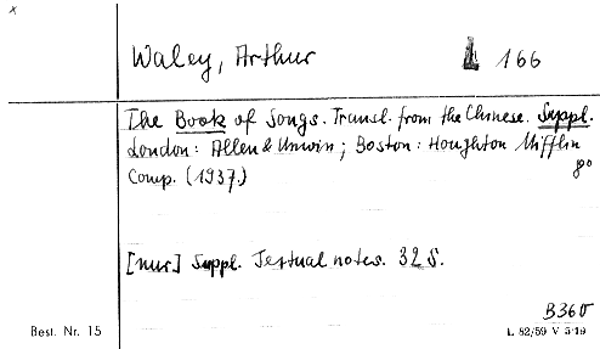 x
Waley, Arthur L 166
The Book of Songs. Transl. from the Chinese. Suppl.
London: Allen & Unwin; Boston: Houghton Mifflin
Comp. (1937.) 8°
[nur] Suppl. Textual notes. 32 S.
Best. Nr. 15
L 82/59 V 5 19